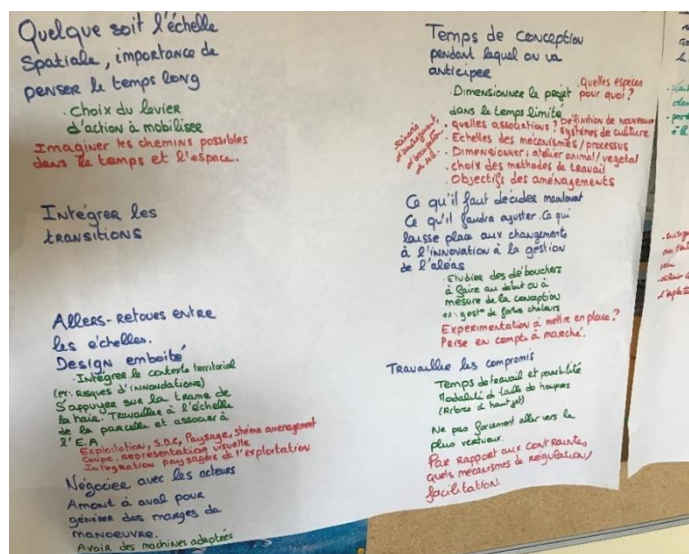 Quelque soit l'échelle
Spatiale, importance de
penser le temps long
. Choix du levier
d'action à mobiliser
Imaginer les chemins possibles
dans le temps et l'espace.
Intégrer les
transitions
Allers-retours entre
les échelles.
Design emboité
. Intégrer le contexte territorial
(ex: Risques d'innondations)
S'appuyer sur la trame de
la haie. Travailler à l'échelle
de la parcelle et associer à
l'E.A
Exploitation, S.D.C, Paysage, shéma amenagement
Coupe, représentation visuelle
Intégration paysagère de l'exploitation
Négocier avec les acteurs
Amont à aval pour
générer des marges de
manoeuvre.
Avoir des machines adaptées
Temps de conception
pendant lequel on va
anticiper
. Quelles especes
. Dimensionner le projet pour quoi?
dans le temps limité
. quelles associations? Définition de nouveaux
systèmes de culture
. Echelles des mécanismes/processus
. Dimensionner: atelier animal/vegetal
. choix des methodes de travail
. Objectifs des aménagements
Ce qu'il faut décider maintenant
Ce qu'il faudra ajuster. Ce qui
laisse place aux changements
à l'innovation à la gestion
de l'aléas
. Etudier des déboucher
à faire au début ou à
mesure de la conception
ex: gest° de fortes chaleurs
Experimentation à mettre en place?
Prise en compte à marché.
Travailler les compromis
Temps de travail et pénibilité
Modalité de taille de houpiers
(Arbres à haut jet)
Ne pas forcément aller vers le
plus vertueux.
Par rapport aux contraintes
quels mécanismes de régulation/
facilitation.